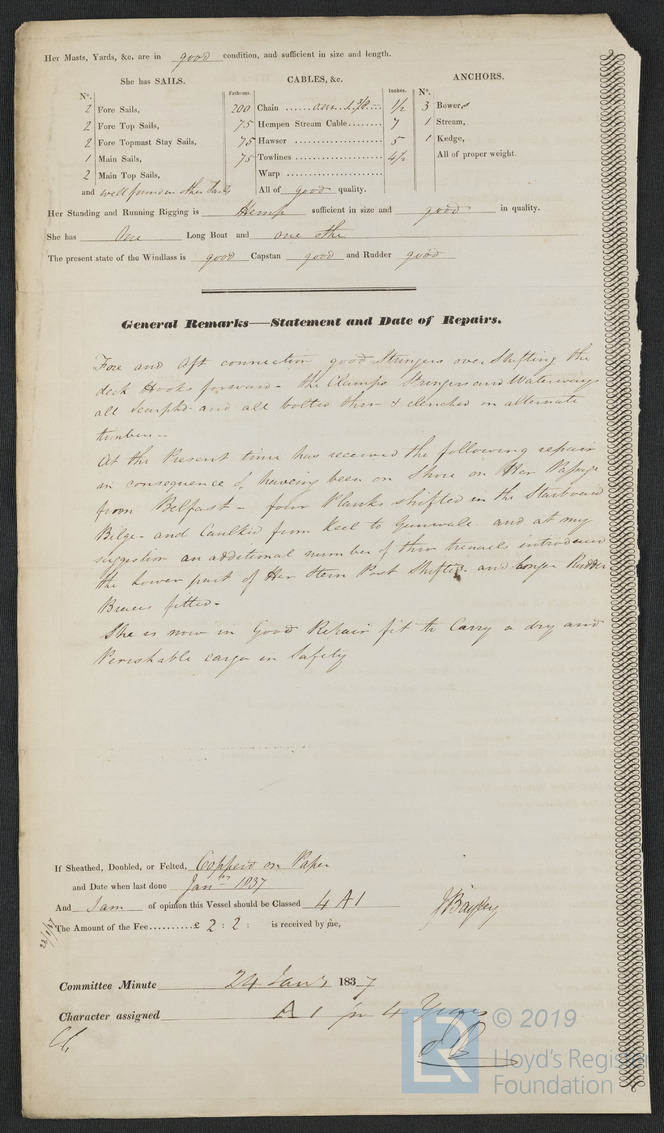 Her Masts, Yards, &c. are in good condition, and sufficient in size and length.
She has SAILS.
CABLES, &c.
ANCHORS.
Nº.
Fathoms.
Inches.
Nº.
2 Fore Sails,
200 Chain ...... 1 ½
3 Bowers
2 Fore Top Sails,
75 Hempen Stream Cable........ 7
1 Stream,
2 Fore Topmast Stay Sails,
75 Hawser .................... 5
1 Kedge,
1 Main Sails,
75 Towlines .................. 4½
All of proper weight.
2 Main Top Sails,
Warp ....................
and well found in other
All of good quality.
Her Standing and Running Rigging is Hemp sufficient in size and good in quality.
She has One Long Boat and one other
The present state of the Windlass is good Capstan good and Rudder good
General Remarks—Statement and Date of Repairs.
Fore and Aft connection good Stringers over Shifting the
deck Hooks forward - the Clamps Stringers and Waterways
all Scarphd and all bolted thro & clenched on alternate
timbers -
At the Present time has received the following repair
in consequence of haveing been on Shore on Her Passage
from Belfast - four Planks shifted in the Starboard
Bilge - and Caulked from Keel to Gunwale and at my
suggestion an additional number of thro trenails introduced
the Lower part of Her Stern Post Shifted - and longer Rudder
Braces fitted -
She is now in Good Repair fit to Carry a dry and
Perishable cargo in Safety
If Sheathed, Doubled, or Felted, Copperd on Paper
and Date when last done Jany 1837
And I am of opinion this Vessel should be Classed 4 A 1
The Amount of the Fee..........£ 2 : 2 : is received by me,
J Bayley
Committee Minute 24 Jany 1837
Character assigned A 1 for 4 Years
LR
© 2019
Lloyd's Register
Foundation